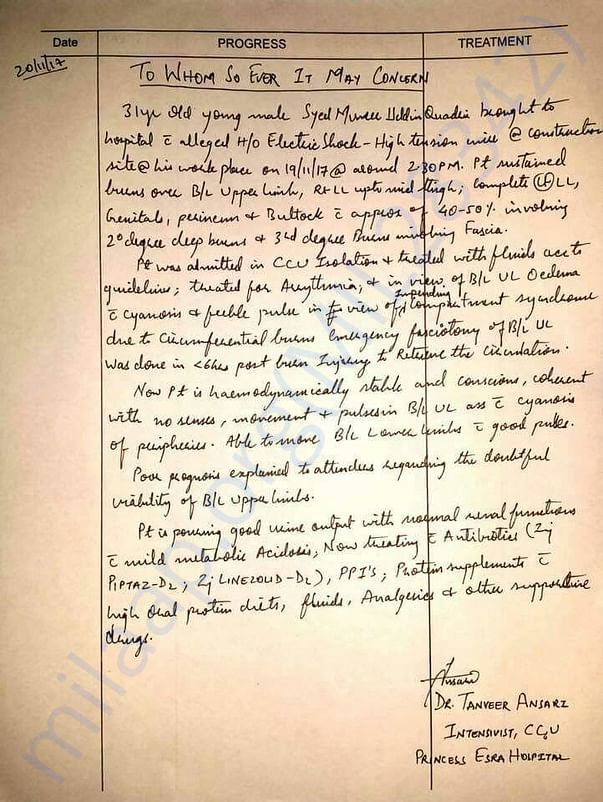 Date PROGRESS TREATMENT
20/11/17
TO WHOM SO EVER IT MAY CONCERN
31yr old young male Syed Quadri brought to
hospital c̄ alleged H/O Electric Shock - High tension wire @ construction
site @ his work place on 19/11/17 @ around 2:30PM. Pt sustained
burns over B/L Upper limb, Rt LL upto mid thigh; Complete (Lt) LL,
Genitals, perineum & Buttock c̄ approx of 40-50% involving
2° degree deep burns & 3rd degree Burns involving Fascia.
Pt was admitted in CCU Isolation & treated with fluids acc to
guidelines; treated for Arrythmia; & in view of B/L UL Oedema
c̄ cyanosis & feeble pulse in view of Impending Compartment syndrome
due to Circumferential burns Emergency fasciotomy of B/L UL
was done in <6hrs post burn Injury to Retrieve the Circulation.
Now Pt is haemodynamically stable and conscious, coherent
with no senses, movement & pulses in B/L UL ass c̄ cyanosis
of peripheries. Able to move B/L Lower limbs c̄ good pulses.
Poor prognosis explained to attendees regarding the doubtful
viability of B/L Upper limbs.
Pt is passing good urine output with normal renal functions
c̄ mild metabolic Acidosis; Now treating c̄ Antibiotics (Inj
PIPTAZ-D2; Inj LINEZOLID-D2), PPI's; Protein supplements c̄
high Oral protein diets, fluids, Analgesics & other supportive
drugs.
Ansari
DR. TANVEER ANSARI
INTENSIVIST, CCU
PRINCESS ESRA HOSPITAL